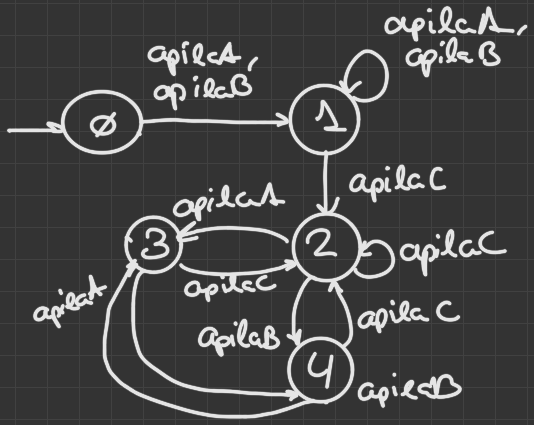 apilaA,
apilaB
apilaA,
apilaB
0
1
apilaC
apilaA
3
2
apilaC
apilaC
apilaA
apilaB
apilaC
4
apilaB